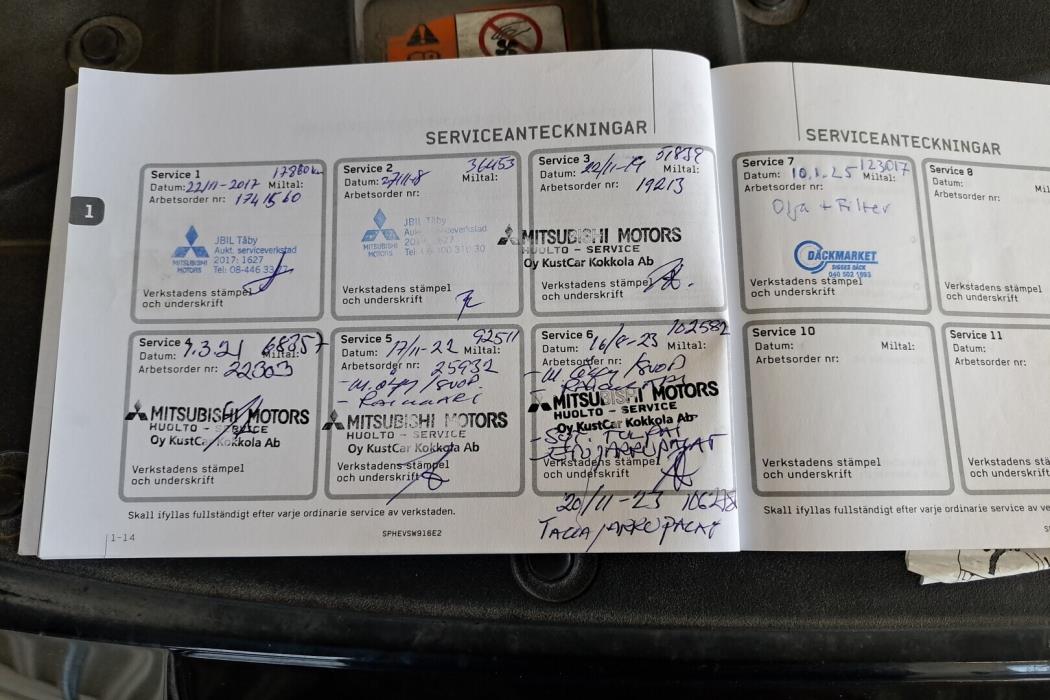 SERVICEANTECKNINGAR
Service 1 17880 km
Datum: 22/11-2017 Miltal:
Arbetsorder nr: 1741560
MITSUBISHI MOTORS
JBIL Täby
Aukt. serviceverkstad
2017: 1627
Tel: 08-446 33
Verkstadens stämpel
och underskrift
Service 2 36453
Datum: 27/11-8 Miltal:
Arbetsorder nr:
MITSUBISHI MOTORS
JBIL Täby
Verkstadens stämpel
och underskrift
Service 3 51839
Datum: 22/11-19 Miltal:
Arbetsorder nr: 19213
MITSUBISHI MOTORS
HUOLTO - SERVICE
Oy KustCar Kokkola Ab
Verkstadens stämpel
och underskrift
1
Service 4 68357
Datum: 9.3.21 Miltal:
Arbetsorder nr: 22303
MITSUBISHI MOTORS
HUOLTO - SERVICE
Oy KustCar Kokkola Ab
Verkstadens stämpel
och underskrift
Service 5 92511
Datum: 17/11-22 Miltal:
Arbetsorder nr: 25932
MITSUBISHI MOTORS
HUOLTO - SERVICE
Oy KustCar Kokkola Ab
Verkstadens stämpel
och underskrift
Service 6 102582
Datum: 16/8-23 Miltal:
Arbetsorder nr:
MITSUBISHI MOTORS
HUOLTO - SERVICE
Oy KustCar Kokkola Ab
Verkstadens stämpel
och underskrift
20/11-23
TAKAJARRUPALAT
Skall ifyllas fullständigt efter varje ordinarie service av verkstaden.
1-14
SPHEVSW916E2
SERVICEANTECKNINGAR
Service 7 123017
Datum: 10.1.25 Miltal:
Arbetsorder nr:
Olja + Filter
DÄCKMARKET
SIGGES DÄCK
040 502 1693
Verkstadens stämpel
och underskrift
Service 8
Datum:
Arbetsorder nr:
Verkstadens stämpel
och underskrift
Service 10
Datum: Miltal:
Arbetsorder nr:
Verkstadens stämpel
och underskrift
Service 11
Datum:
Arbetsorder nr:
Verkstadens stä
och underskrift
Skall ifyllas fullständigt efter varje ordinarie service av ve